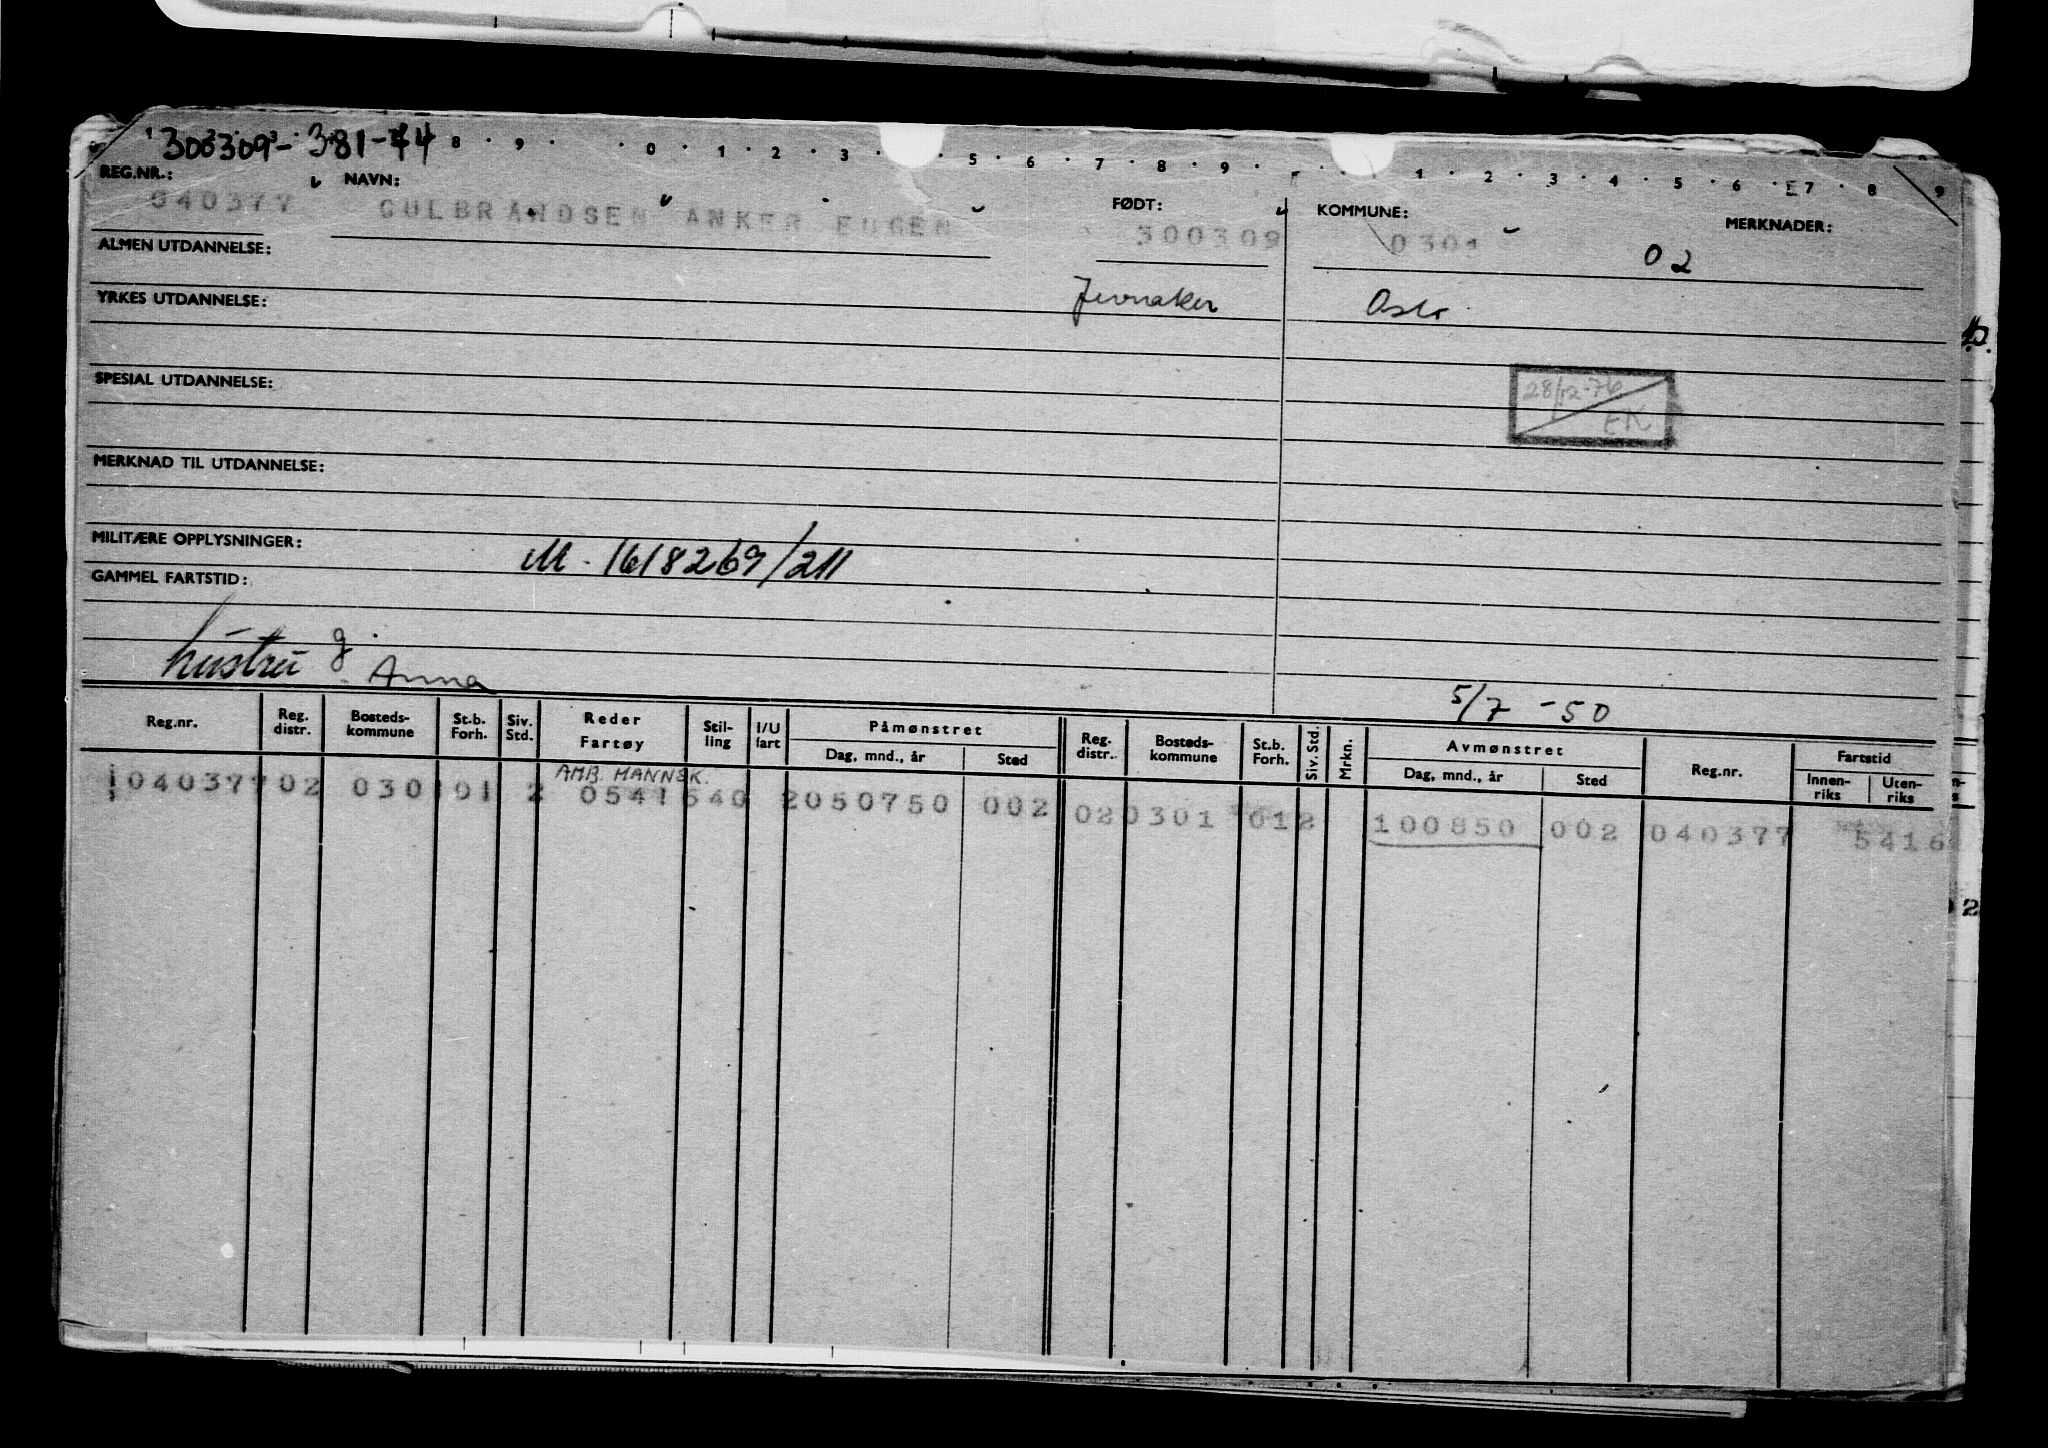 300309- 381-44
8 9 0 1 2 3 5 6 7 8 9 1 2 3 4 5 6 7 8 9
REG.NR.: NAVN: FØDT: KOMMUNE: MERKNADER:
040377 GULBRANDSEN ANKER EUGEN 300309 0301 02
ALMEN UTDANNELSE:
YRKES UTDANNELSE: Jevnaker Oslo
28/12-76 EK
SPESIAL UTDANNELSE:
MERKNAD TIL UTDANNELSE:
MILITÆRE OPPLYSNINGER: M. 1618269/211
GAMMEL FARTSTID:
hustru g. Anna
5/7 -50
Reg.nr. Reg. distr. Bosteds-kommune St.b. Forh. Siv. Std. Reder Fartøy Stil-ling I/U fart Påmønstret Dag, mnd., år Sted Reg. distr. Bosteds-kommune St.b. Forh. Siv. Std. Mrkn. Avmønstret Dag, mnd., år Sted Reg.nr. Fartstid Innen-riks Uten-riks
AMB. MANNSK.
040377 02 0301 01 2 0541 640 2 050750 002 02 0301 01 2 100850 002 040377 5416